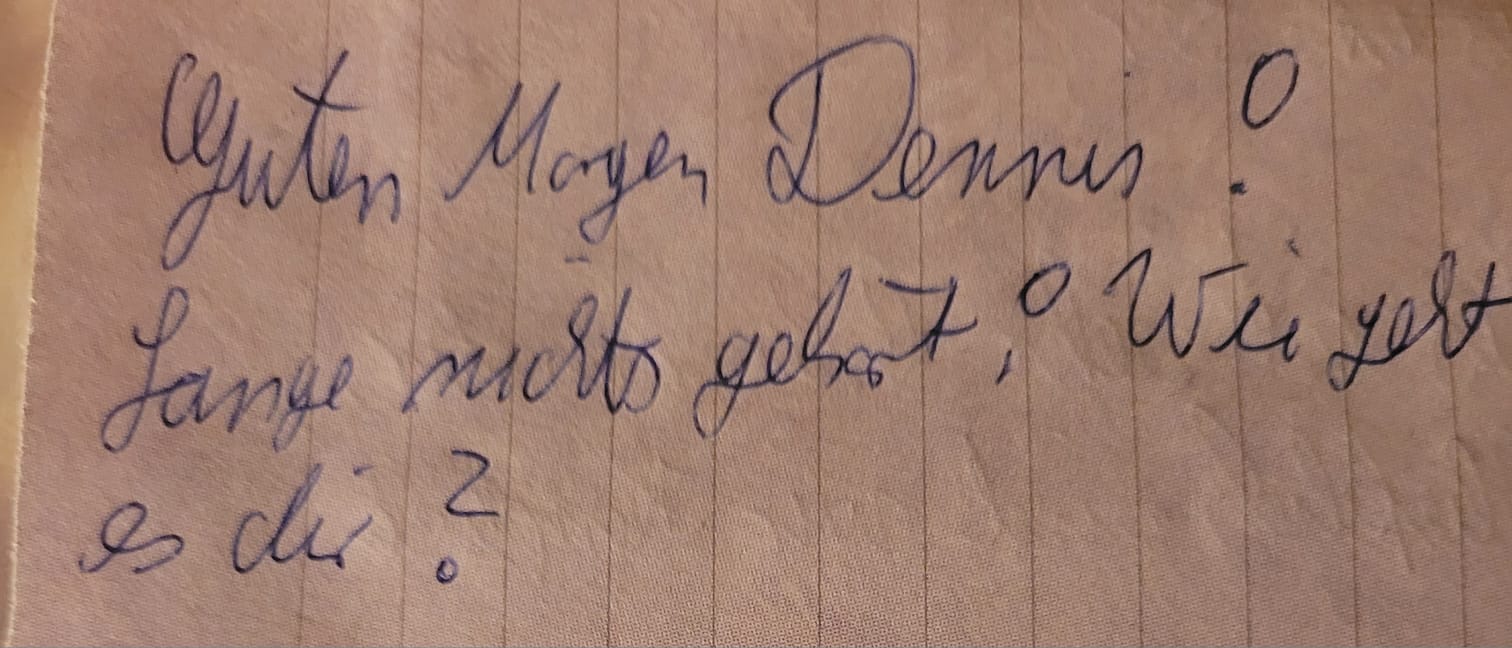 Guten Morgen Dennis!
Lange nichts gehört,! Wie geht
es dir?